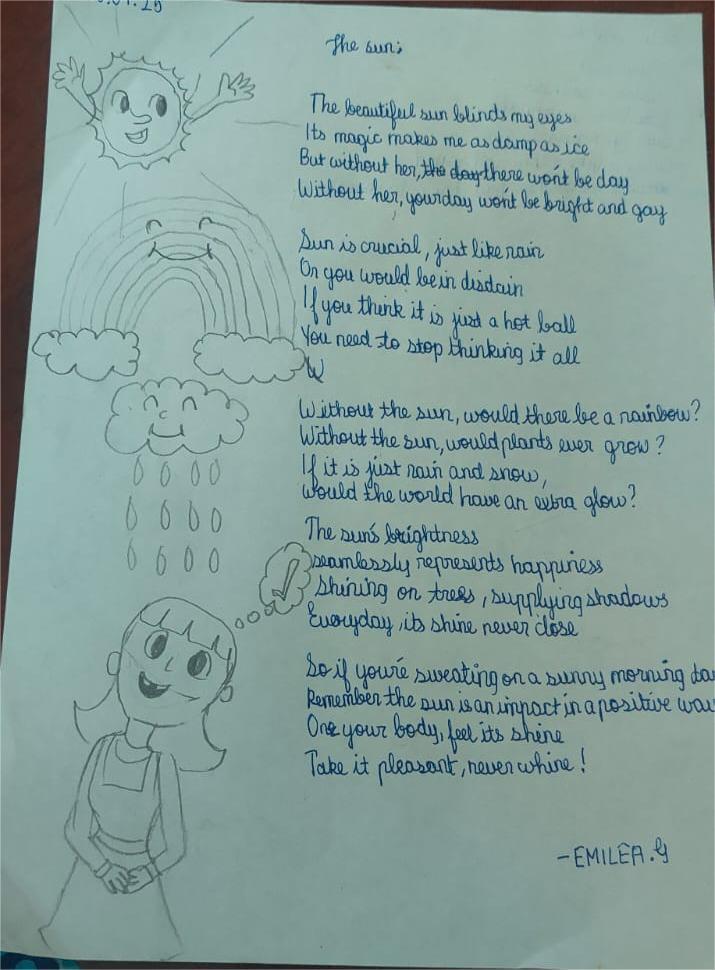 The sun:
The beautiful sun blinds my eyes
Its magic makes me as damp as ice
But without her, the day there won't be day
Without her, your day won't be bright and gay
Sun is crucial, just like rain
Or you would be in disdain
If you think it is just a hot ball
You need to stop thinking it all
W
Without the sun, would there be a rainbow?
Without the sun, would plants ever grow?
If it is just rain and snow,
Would the world have an extra glow?
The sun's brightness
seamlessly represents happiness
Shining on trees, supplying shadows
Everyday, its shine never close
So if you're sweating on a sunny morning
Remember the sun is an impact in a positive
One your body, feel its shine
Take it pleasant, never whine!
-EMILEA.G